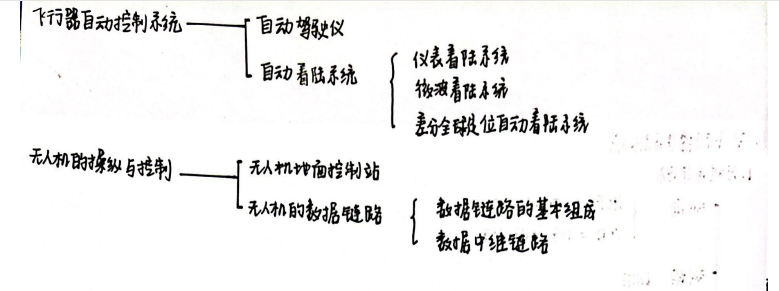 飞行器自动控制系统
自动驾驶仪
自动着陆系统
仪表着陆系统
微波着陆系统
差分全球定位自动着陆系统
无人机的操纵与控制
无人机地面控制站
无人机的数据链路
数据链路的基本组成
数据中继链路